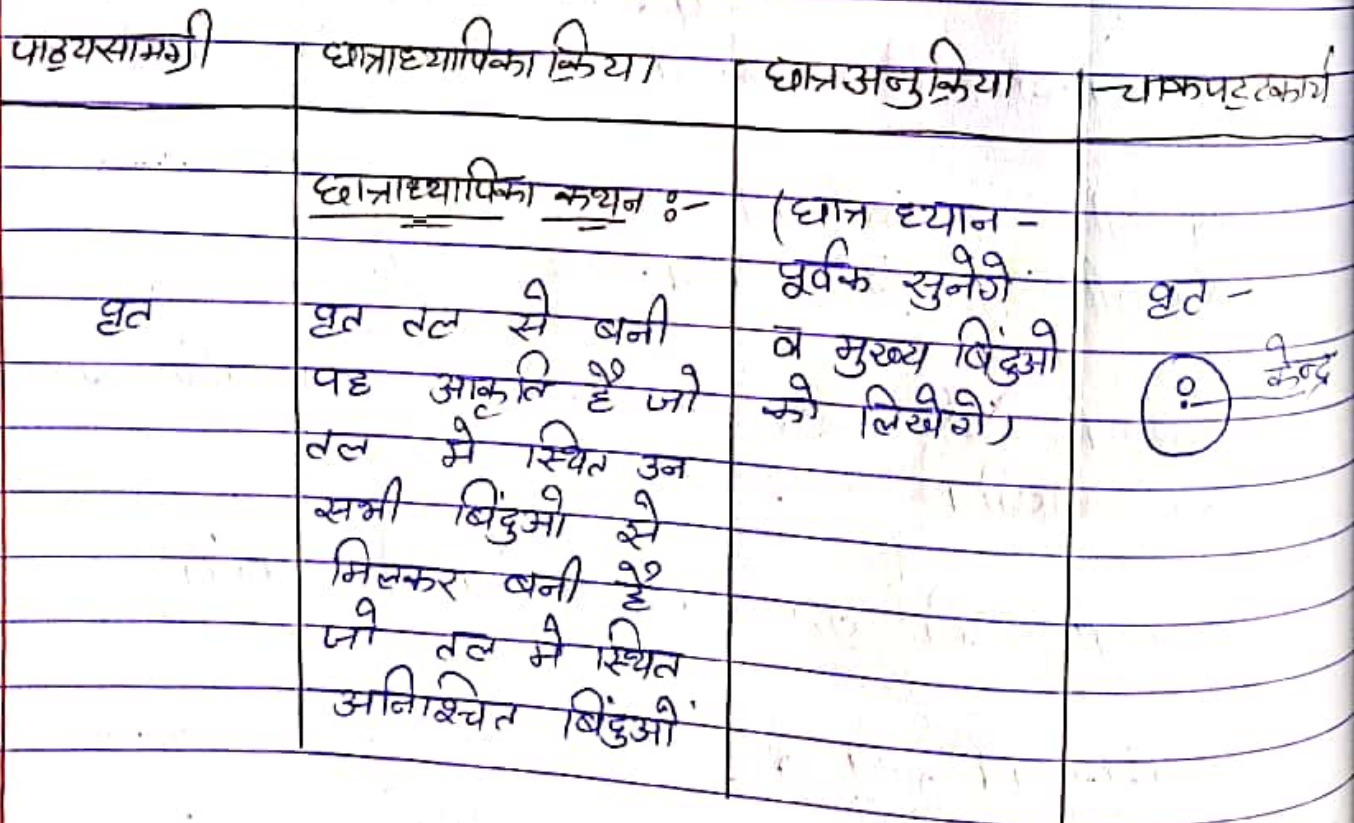 पाठ्यसामग्री
छात्राध्यापिका क्रिया
छात्र अनुक्रिया
चाकपट्टकार्य
छात्राध्यापिका कथन :-
वृत
वृत तल से बनी
वह आकृति है जो
तल मे स्थित उन
सभी बिंदुओ से
मिलकर बनी है
जो तल मे स्थित
अनिश्चित बिंदुओं
(छात्र ध्यान -
पूर्वक सुनेगे
व मुख्य बिंदुओ
को लिखेगें)
वृत -
केन्द्र